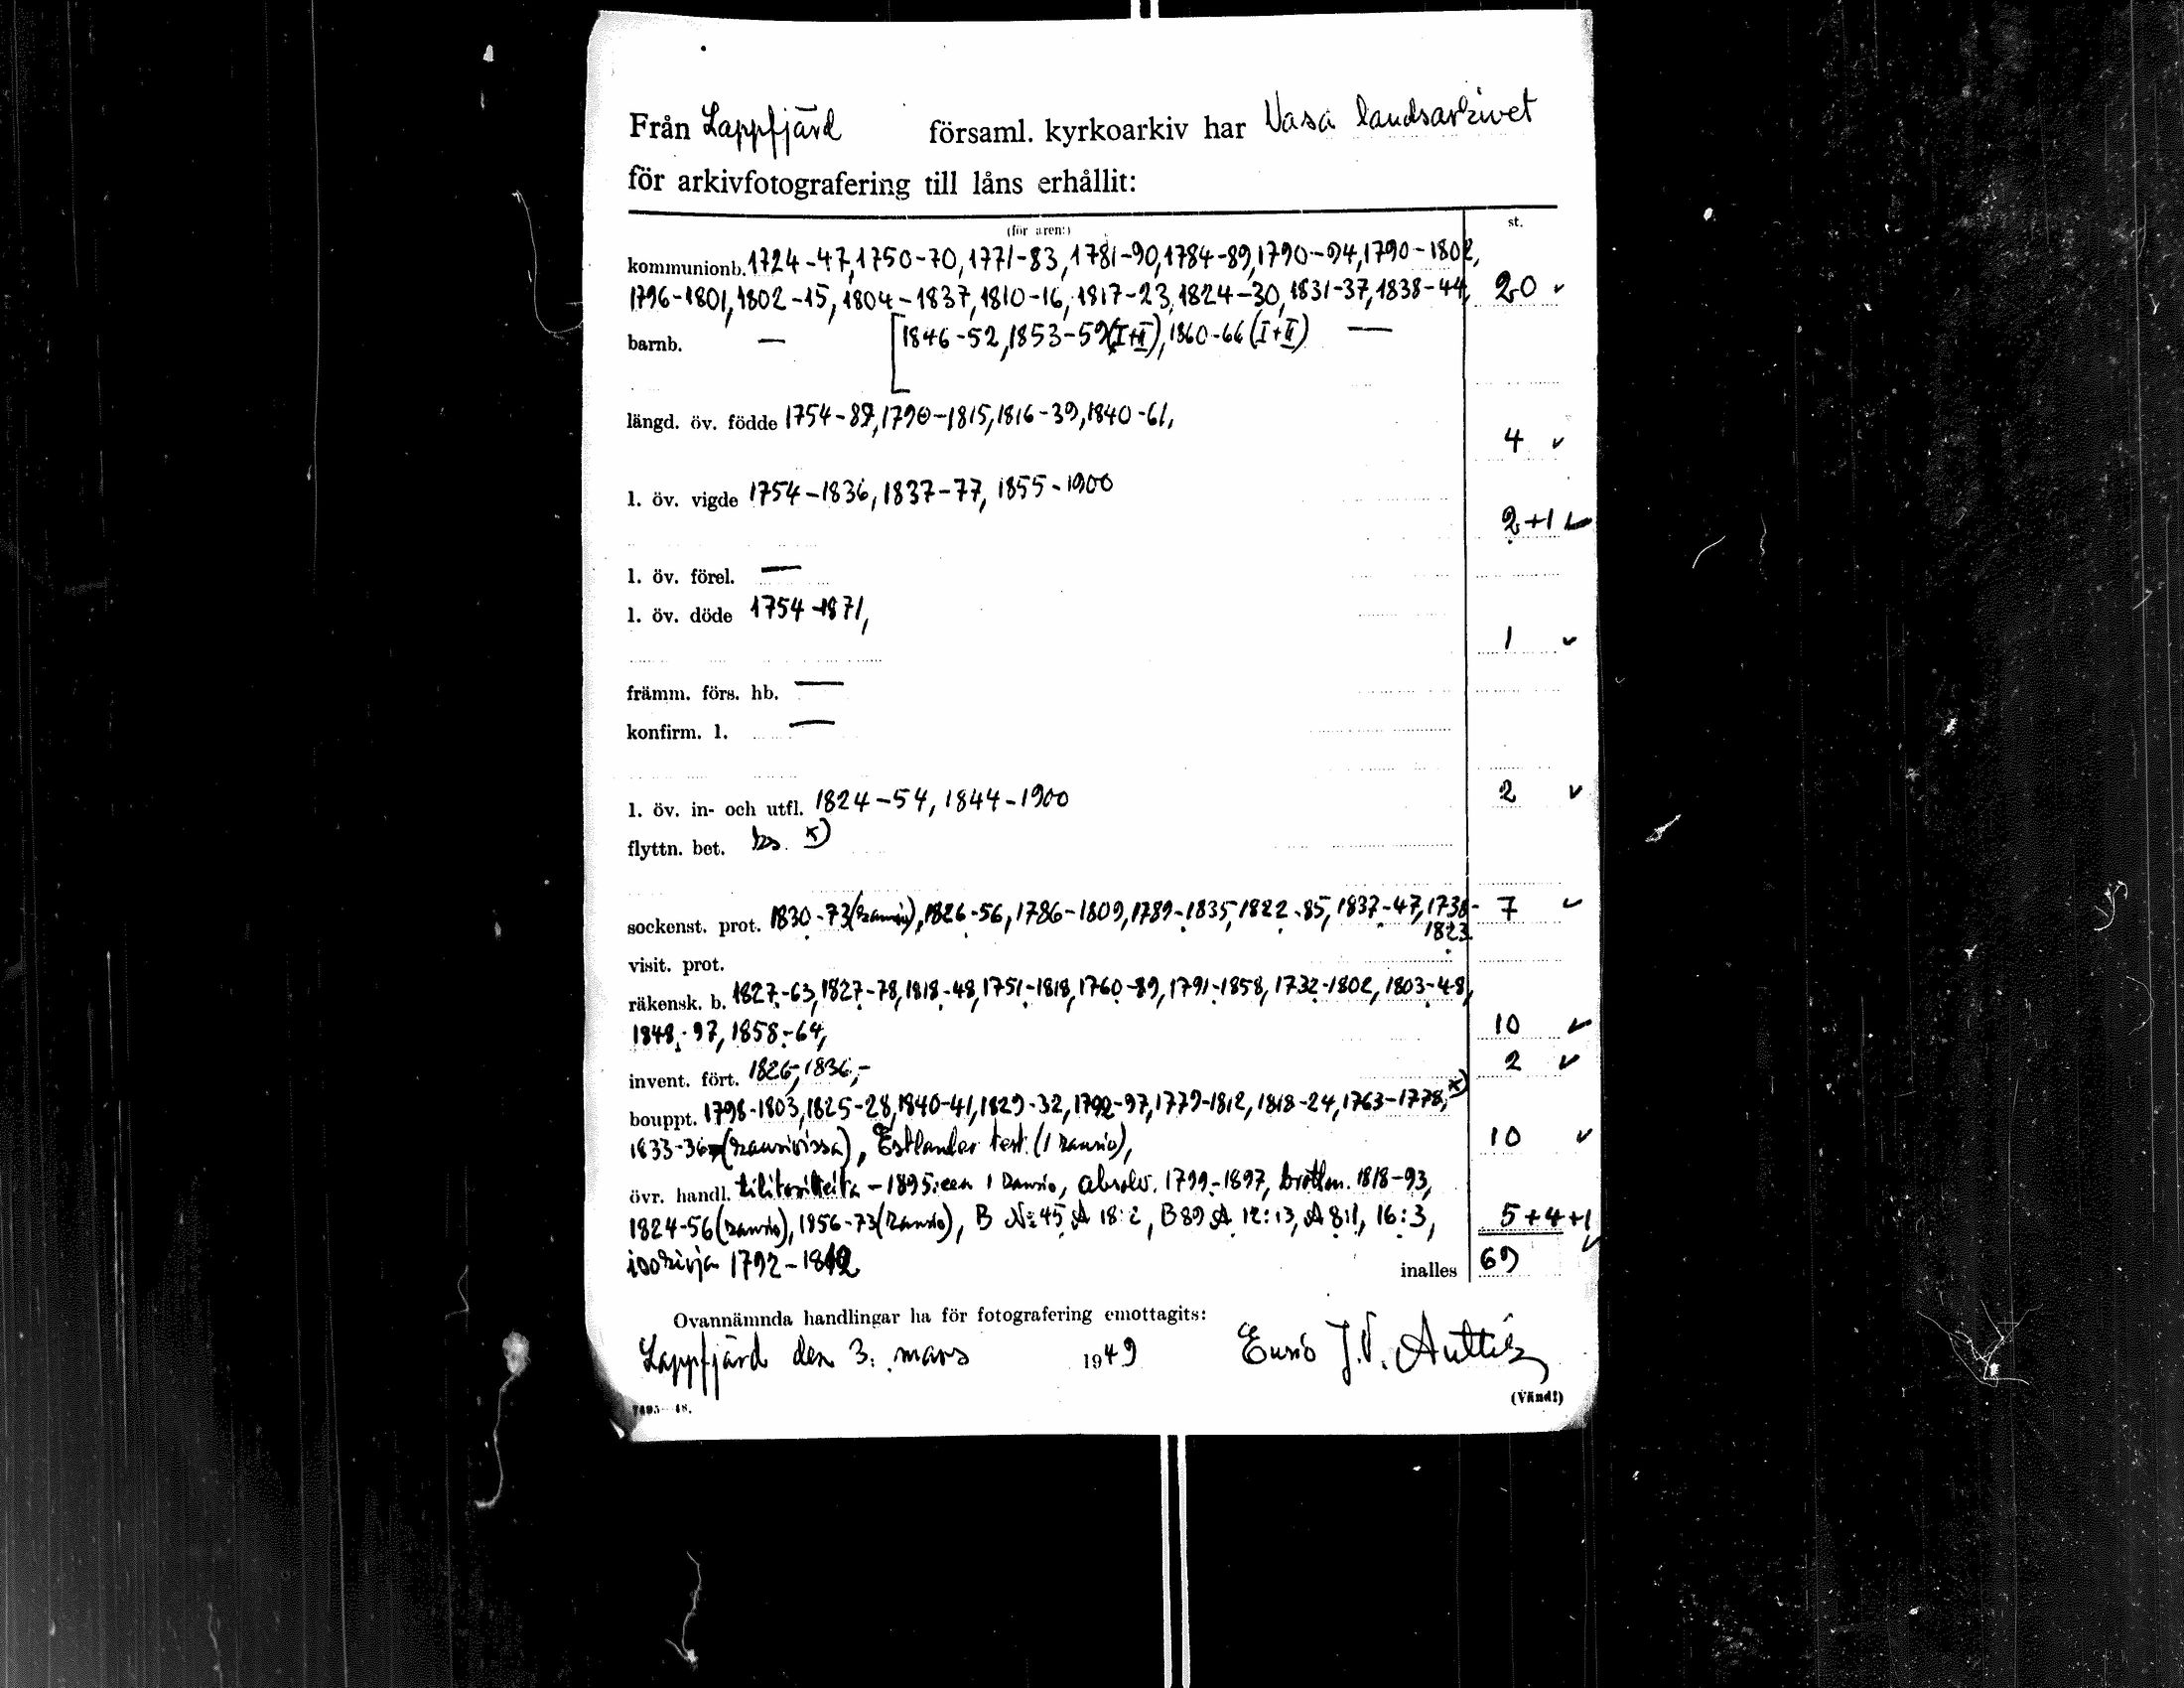 Från Lappfjärd församl. kyrkoarkiv har Vasa landsarkivet
för arkivfotografering till låns erhållit:
(för åren:) st.
kommunionb. 1724-47, 1750-70, 1771-83, 1781-90, 1784-89, 1790-94, 1790-1802,
1796-1801, 1802-15, 1804-1837, 1810-16, 1817-23, 1824-30, 1831-37, 1838-44, 20 ✓
barnb. — [1846-52, 1853-59 (I+II), 1860-66 (I+II) —
längd. öv. födde 1754-89, 1790-1815, 1816-39, 1840-61,
4 ✓
l. öv. vigde 1754-1836, 1837-77, 1855-1900
2+1 ✓
l. öv. förel. —
l. öv. döde 1754-1871,
1 ✓
främm. förs. hb. —
konfirm. l. —
l. öv. in- och utfl. 1824-54, 1844-1900 2 ✓
flyttn. bet. ks. x)
sockenst. prot. 1830-73 (kansio), 1826-56, 1786-1809, 1789-1835, 1822-85, 1837-47, 1738- 7 ✓
1823
visit. prot.
räkensk. b. 1827-63, 1827-78, 1818-48, 1751-1818, 1760-89, 1791-1858, 1732-1802, 1803-48,
1848-97, 1858-64, 10 ✓
invent. fört. 1826-, 1836,- 2 ✓
bouppt. 1798-1803, 1825-28, 1840-41, 1829-32, 1792-97, 1779-1812, 1818-24, 1763-1778, x)
1833-36 (kansivissa), Estlander test. (1 kansio), 10 ✓
övr. handl. -1895:een 1 kansio, absolv. 1799-1897, brottm. 1818-93,
1824-56 (kansio), 1856-73 (kansio), B №45 A 18:2, B 89 A 12:13, A 8:1, 16:3, 5+4+1 ✓
isokirja 1792-1812 inalles 69
Ovannämnda handlingar ha för fotografering emottagits:
Lappfjärd den 3. mars 1949 J.V.
(Vänd!)